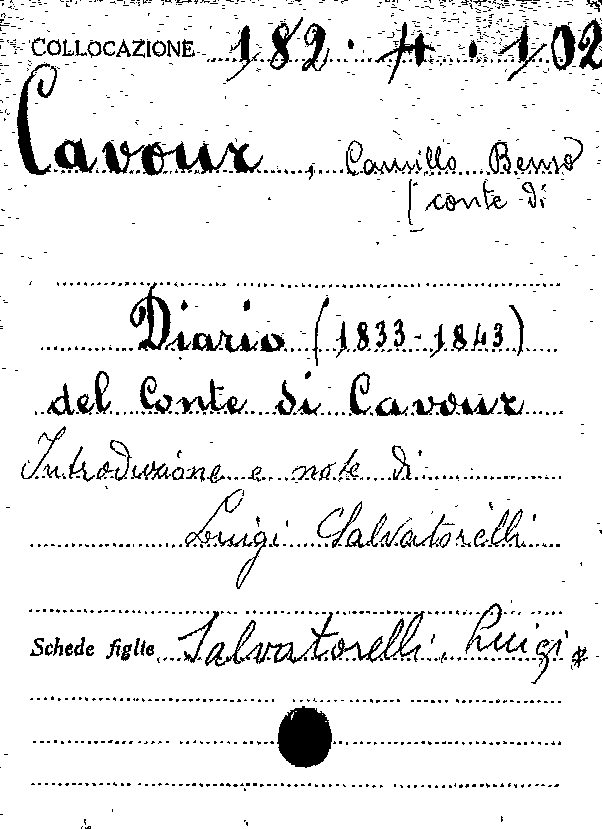 COLLOCAZIONE 182. H. 102
Cavour, Camillo Benso
[conte di
Diario (1833-1843)
del Conte di Cavour
Introduzione e note di
Luigi Salvatorelli
Schede figlie Salvatorelli, Luigi *